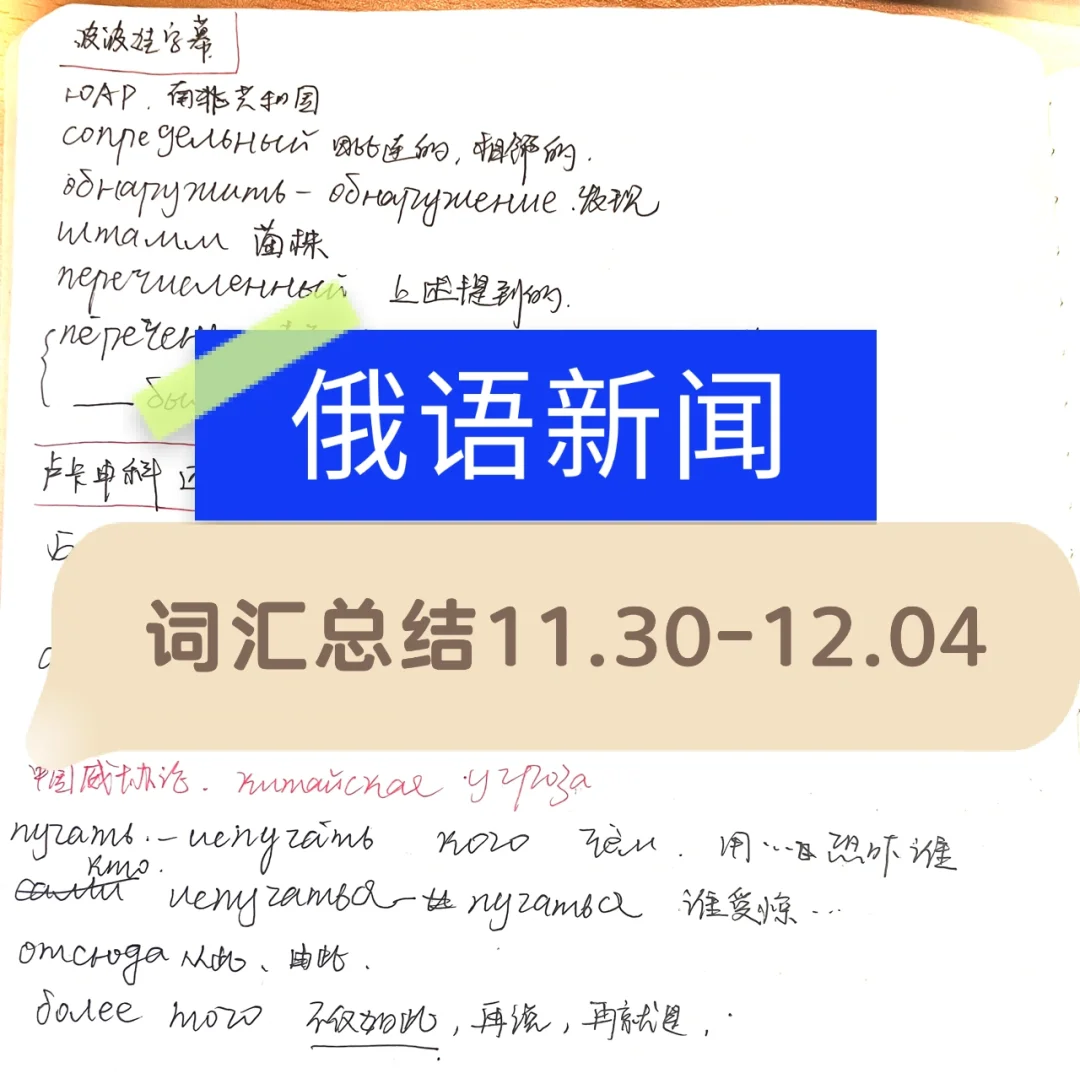 波波娃字幕
ЮАР. 南非共和国
сопредельный 毗连的, 相邻的.
обнаружить – обнаружение. 发现
штамм 菌株
перечисленный 上述提到的.
перечень
俄语新闻
卢卡申科
词汇总结11.30-12.04
中国威胁论. китайская угроза
пугать. – испугать кого чем. 用…恐吓谁
кто.
испугаться – пугаться 谁受惊…
отсюда 从此、由此.
более того 不仅如此, 再说, 再就是,